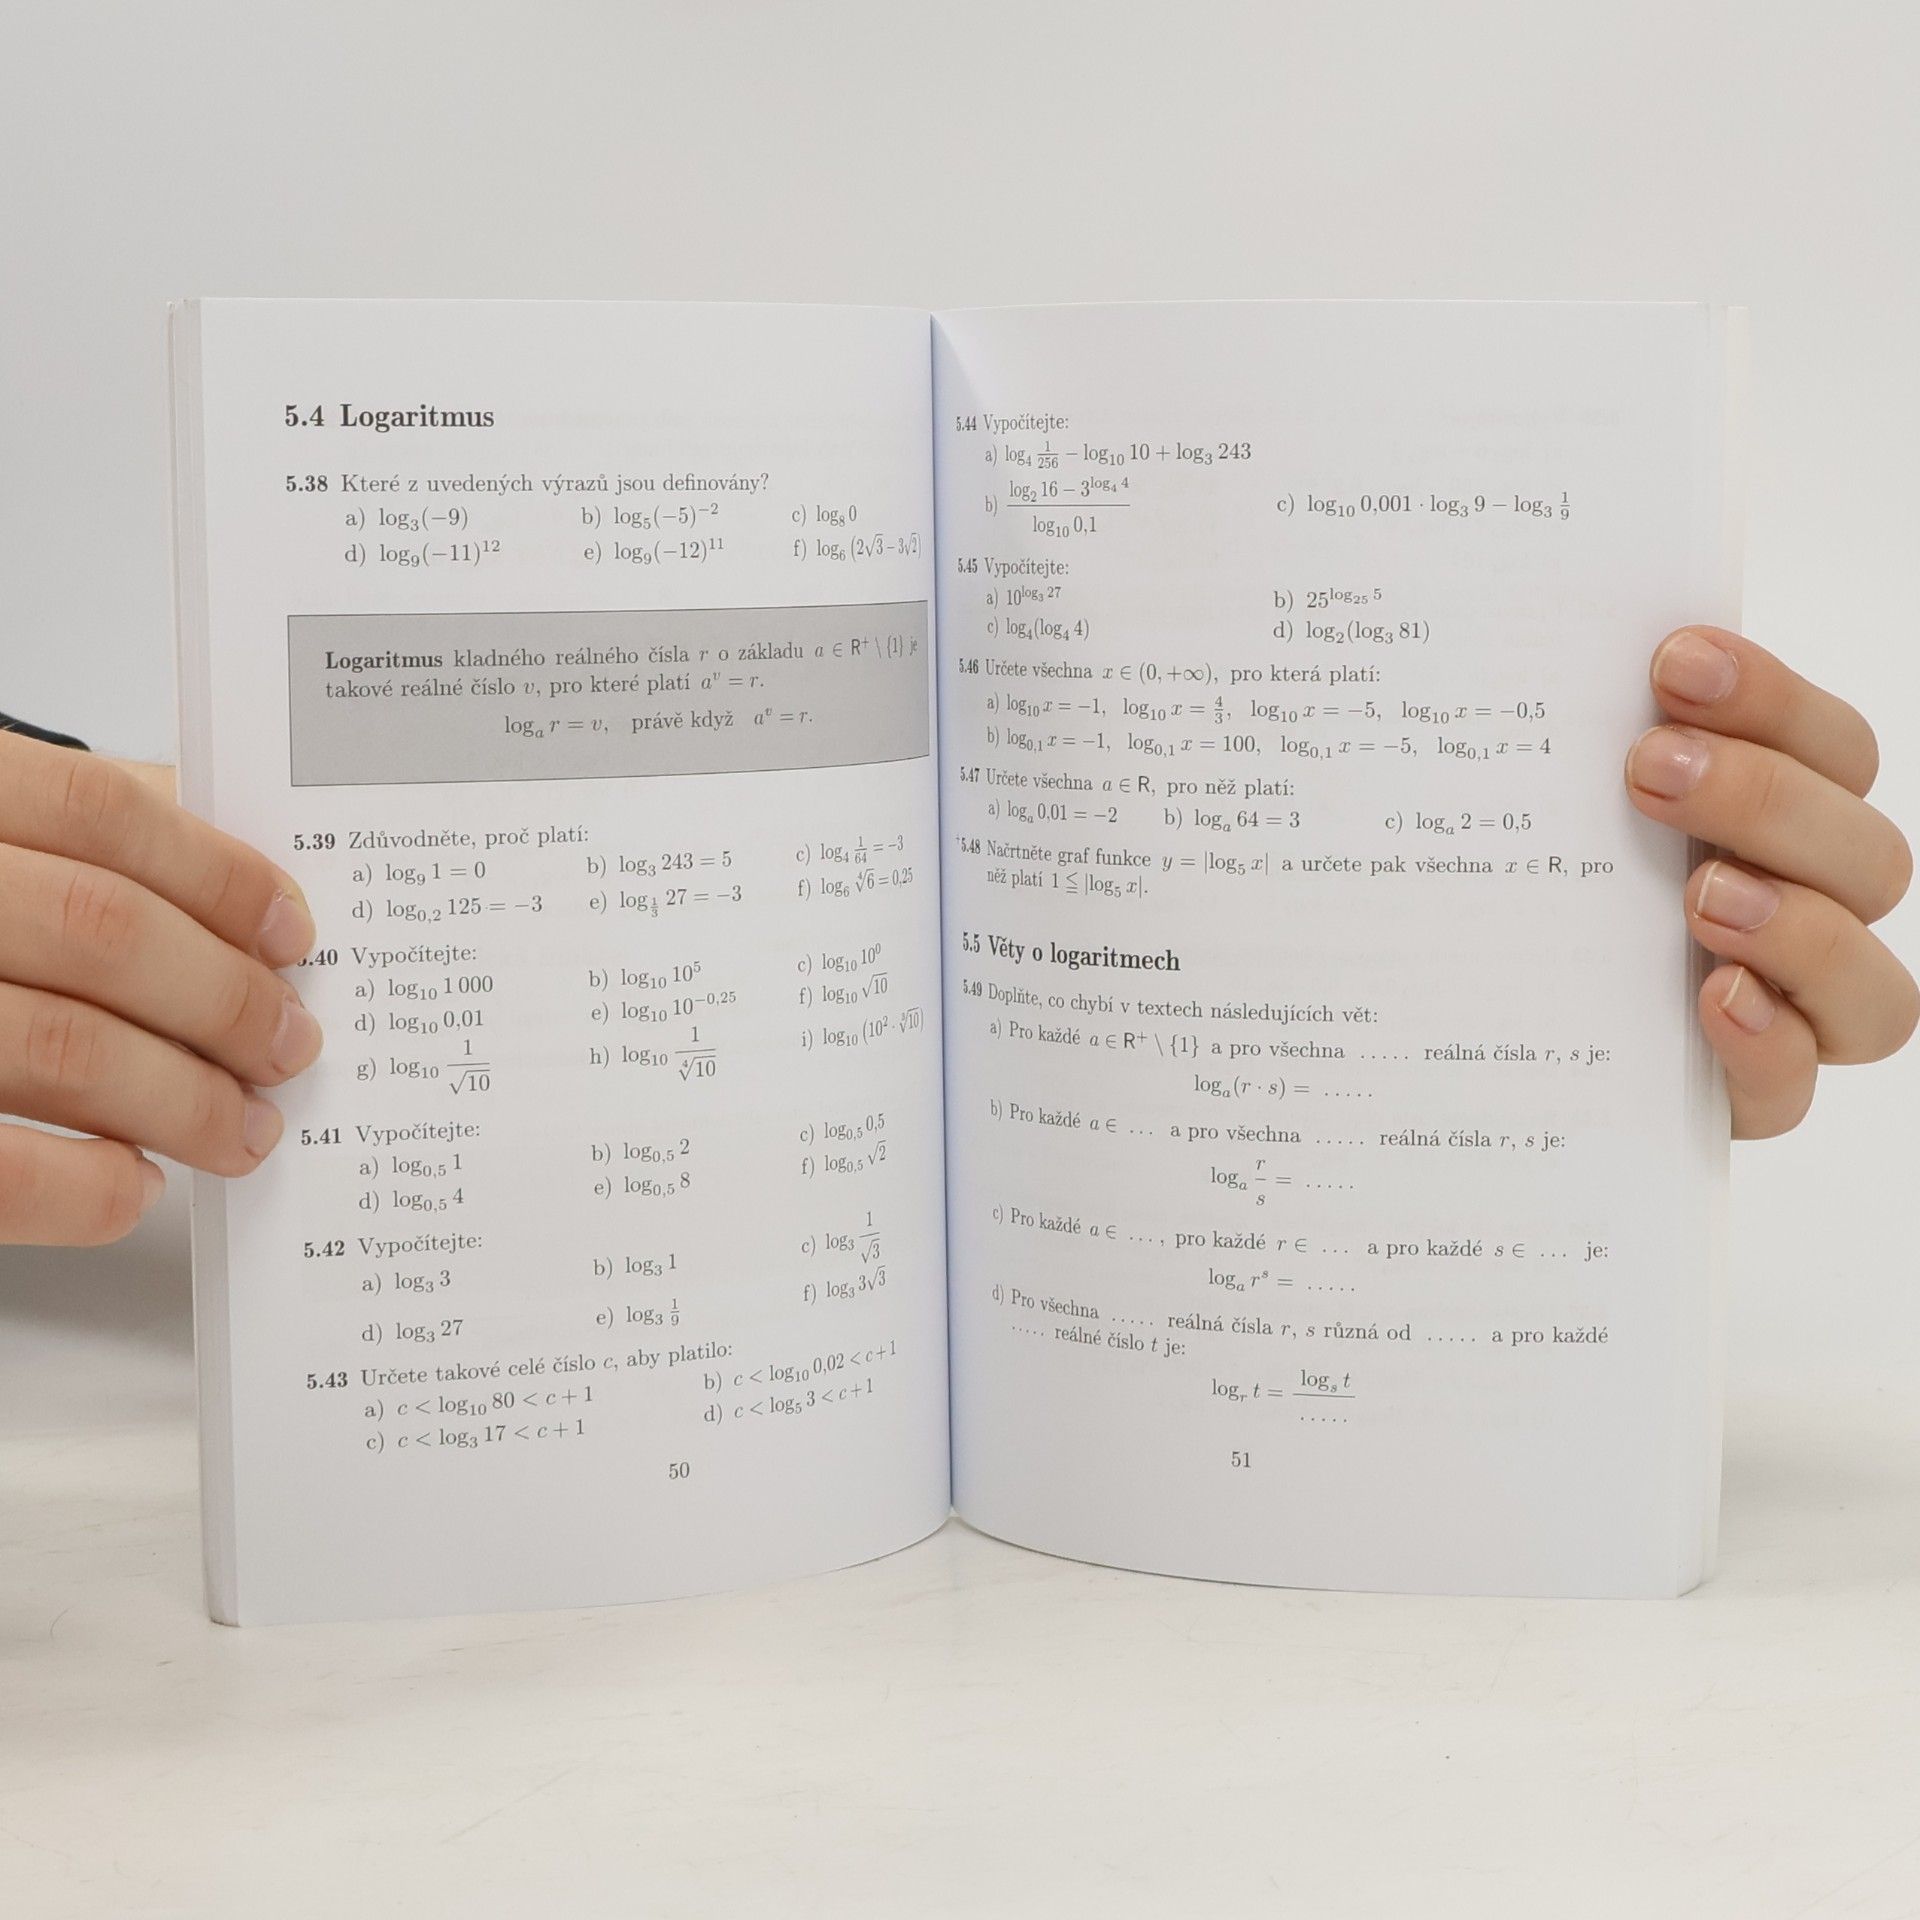 5.4 Logaritmus
5.38 Které z uvedených výrazů jsou definovány?
a) log₃(−9) b) log₅(−5)⁻² c) log₈ 0
d) log₉(−11)¹² e) log₉(−12)¹¹ f) log₆ (2√3 − 3√2)
Logaritmus kladného reálného čísla r o základu a ∈ R⁺ \ {1} je
takové reálné číslo v, pro které platí aᵛ = r.
logₐ r = v, právě když aᵛ = r.
5.39 Zdůvodněte, proč platí:
a) log₉ 1 = 0 b) log₃ 243 = 5 c) log₄ 1/64 = −3
d) log₀,₂ 125 = −3 e) log_{1/3} 27 = −3 f) log₆ ∜6 = 0,25
.40 Vypočítejte:
a) log₁₀ 1 000 b) log₁₀ 10⁵ c) log₁₀ 10⁰
d) log₁₀ 0,01 e) log₁₀ 10^{−0,25} f) log₁₀ √10
g) log₁₀ 1/√10 h) log₁₀ 1/∜10 i) log₁₀ (10² · ∛10)
5.41 Vypočítejte:
a) log₀,₅ 1 b) log₀,₅ 2 c) log₀,₅ 0,5
d) log₀,₅ 4 e) log₀,₅ 8 f) log₀,₅ √2
5.42 Vypočítejte:
a) log₃ 3 b) log₃ 1 c) log₃ 1/√3
d) log₃ 27 e) log₃ 1/9 f) log₃ 3√3
5.43 Určete takové celé číslo c, aby platilo:
a) c < log₁₀ 80 < c + 1 b) c < log₁₀ 0,02 < c + 1
c) c < log₃ 17 < c + 1 d) c < log₅ 3 < c + 1
50
5.44 Vypočítejte:
a) log₄ 1/256 − log₁₀ 10 + log₃ 243
b) (log₂ 16 − 3^{log₄ 4})/(log₁₀ 0,1) c) log₁₀ 0,001 · log₃ 9 − log₃ 1/9
5.45 Vypočítejte:
a) 10^{log₃ 27} b) 25^{log₂₅ 5}
c) log₄(log₄ 4) d) log₂(log₃ 81)
5.46 Určete všechna x ∈ (0, +∞), pro která platí:
a) log₁₀ x = −1, log₁₀ x = 4/3, log₁₀ x = −5, log₁₀ x = −0,5
b) log₀,₁ x = −1, log₀,₁ x = 100, log₀,₁ x = −5, log₀,₁ x = 4
5.47 Určete všechna a ∈ R, pro něž platí:
a) logₐ 0,01 = −2 b) logₐ 64 = 3 c) logₐ 2 = 0,5
†5.48 Načrtněte graf funkce y = |log₅ x| a určete pak všechna x ∈ R, pro
něž platí 1 ≦ |log₅ x|.
5.5 Věty o logaritmech
5.49 Doplňte, co chybí v textech následujících vět:
a) Pro každé a ∈ R⁺ \ {1} a pro všechna ..... reálná čísla r, s je:
logₐ(r · s) = .....
b) Pro každé a ∈ ... a pro všechna ..... reálná čísla r, s je:
logₐ r/s = .....
c) Pro každé a ∈ ..., pro každé r ∈ ... a pro každé s ∈ ... je:
logₐ rˢ = .....
d) Pro všechna ..... reálná čísla r, s různá od ..... a pro každé
..... reálné číslo t je:
logᵣ t = logₛ t/.....
51